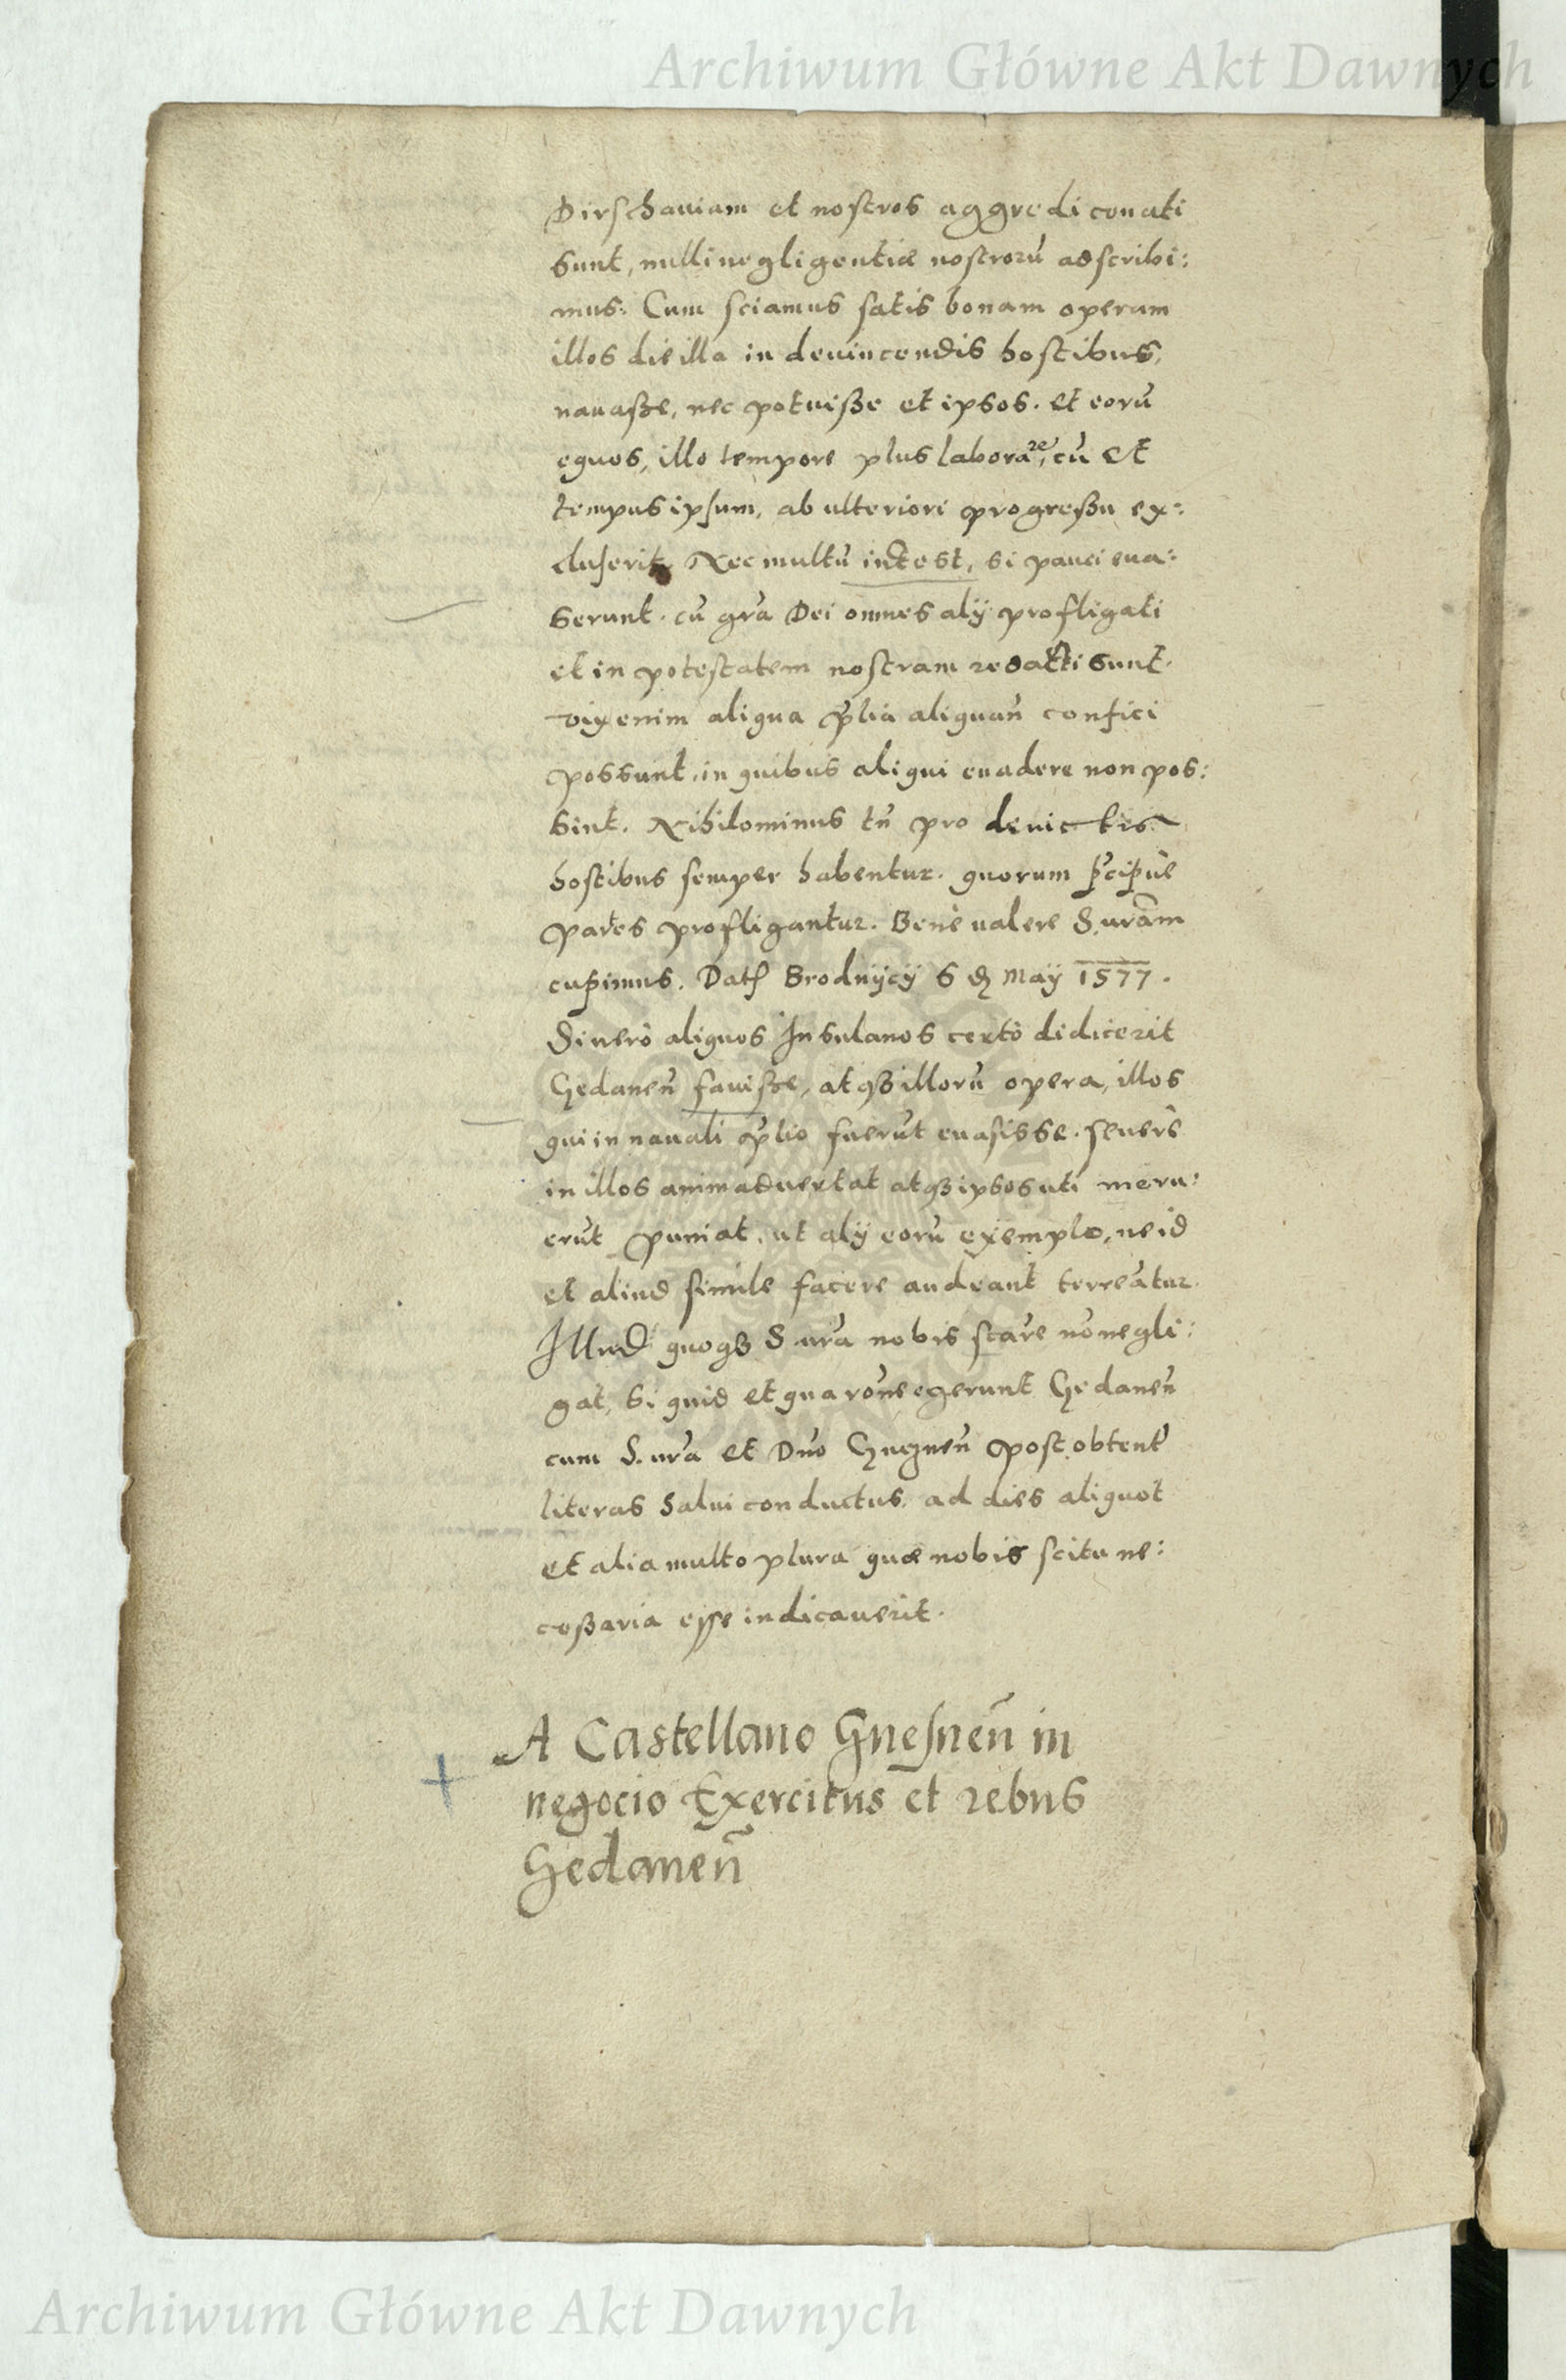 Archiwum Główne Akt Dawnych
Dirschauiam et nostros aggredi conati
sunt, nulli negligentiæ nostrorū adscribi:
mus: Cum sciamus satis bonam operam
illos die illa in deuincendis hostibus,
nauaße, nec potuiße et ipsos. et eorū
equos, illo tempore plus laborare, cū et
tempus ipsum, ab ulteriori progreßu ex:
cluserit Nec multū intest, si pauci eua:
serunt. cū gra Dei omnes alij profligati
et in potestatem nostram redacti sunt.
vix enim aliqua plia aliquañ confici
possunt, in quibus aliqui euadere non pos:
sint. Nihilominus tñ pro deuictis
hostibus semper habentur. quorum pcipue
partes profligantur. Bene ualere S. uram
cupimus. Dat Brodnÿcÿ 6 d Maÿ 1577.
Si uerò aliquos Insulanos certò didicerit
Gedaneñ fauiße, atqꝫ illorū opera, illos
qui in nauali plio fuerūt euasisse. seuerè
in illos animaduertat atqꝫ ipsos uti meru:
erūt puniat, ut alij eorū exemplo, ne id
et aliud simile facere audeant terreātur.
Illud quoqꝫ S ura nobis scare nō negli:
gat, si quid et qua rone egerunt Gedaneñ
cum S. ura et Dno Gnezneñ post obtent
literas Salui conductus. ad dies aliquot
et alia multo plura quæ nobis scitu ne:
ceßaria esse indicauerit.
A Castellano Gnesneñ in
negocio Exercitus et rebus
Gedaneñ
Archiwum Główne Akt Dawnych